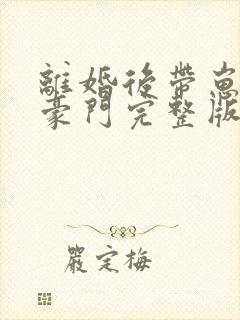 離婚後帶崽
豪門完整版
嚴定梅